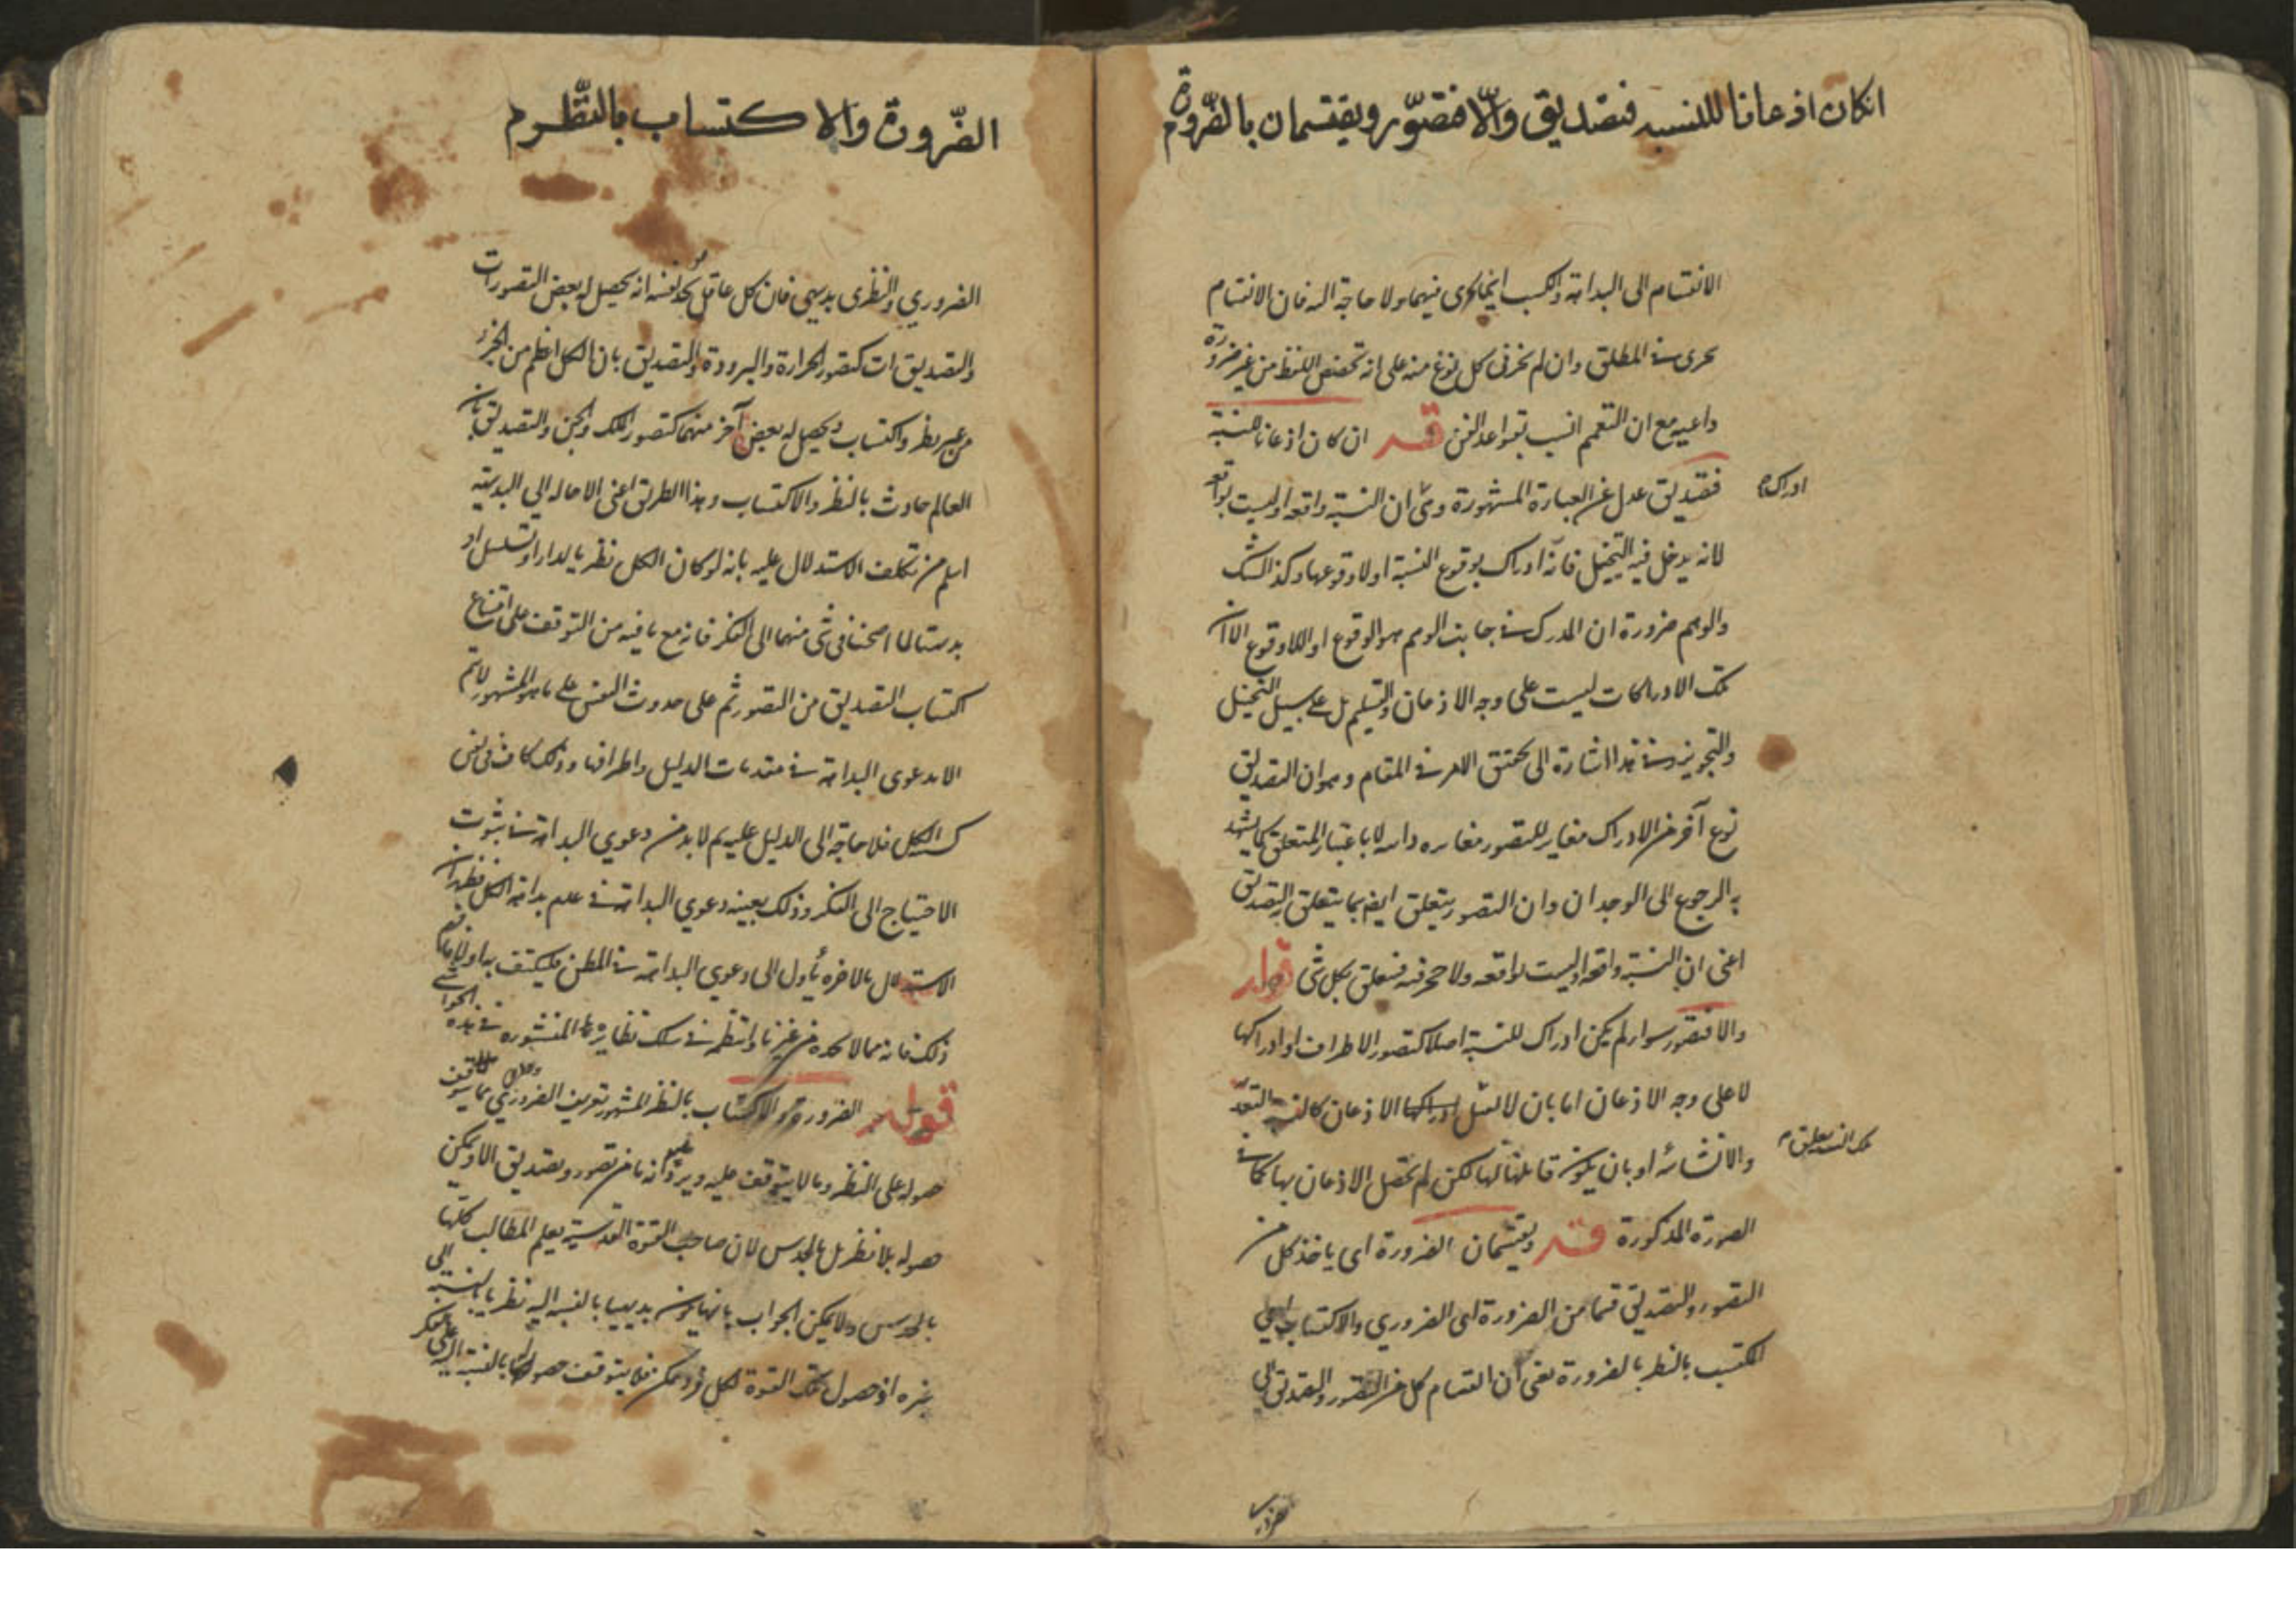 انكان اذعانا للنسبه فتصديق والّا فتصوّر ويقتسمان بالضّرورة م
الانقسام الى البداهة والكسب انما يجرى فيهما ولا حاجة اليه فان الانقسام
يجرى فى المطلق وان لم يجز فى كل نوع منه على انه تخصيص اللفظ من غير ضرورة
داعيه مع ان التعميم انسب بقواعد الفن قـــه ان كان اذعانا للنسبة
فتصديق عدل عن العبارة المشهورة وهى ان النسبة واقعه او ليست بواقعه
ادراك م
لانه يدخل فيه التخييل فانه ادراك بوقوع النسبة اولا وقوعها وكذا الشك
والوهم ضرورة ان المدرك فى جانب الوهم هو الوقوع او اللاوقوع الا ان
تلك الادراكات ليست على وجه الاذعان والتسليم بل على سبيل التخييل
والتجويز وفى هذا اشارة الى تحقق الامر فى المقام وهو ان التصديق
نوع آخر من الادراك مغاير للتصور مغايره ذاتيه لا باعتبار المتعلق كما يشهد
به الرجوع الى الوجدان وان التصور يتعلق ايضا بما يتعلق به التصديق
اعنى ان النسبة واقعة او ليست بواقعه ولا حجر فيه فيتعلق بكل شى قوله
والا فتصور سواء لم يكن ادراك للنسبة اصلا كتصور الاطراف او ادراكها
لا على وجه الاذعان اما بان لا تقبل الاذعان كالنسبة التقيد
والانشائه او بان يكون قابلة لها لكن لم يحصل الاذعان بها كما فى
تلك النسبة يتعلق م
الصورة المذكورة قـــه ويقتسمان الضرورة اى ياخذ كل من
التصور والتصديق قسما من الضرورة اى الضرورى والاكتساب اى
المكتسب بالنظر بالضرورة يعنى ان انقسام كل من التصور والتصديق الى
الضّرورة والاكتساب بالنّظر م
الضرورى والنظرى بديهى فان كل عاقل يجد من نفسه انه يحصل له بعض التصورات
والتصديقات كتصور الحرارة والبرودة والتصديق بان الكل اعظم من الجزء
من غير نظر واكتساب ويحصل له بعض آخر منهما كتصور الملك والجن والتصديق بان
العالم حادث بالنظر والاكتساب وهذا الطريق اعنى الاحاله الى البديهة
اسلم من تكلف الاستدلال عليه بانه لو كان الكل نظريا لدار او تسلسل او
بديهيا لما احتجنا فى شى منهما الى الفكر فانه مع ما فيه من التوقف على امتناع
اكتساب التصديق من التصور ثم على حدوث النفس على ما هو المشهور لا يتم
الا بدعوى البداهة فى مقدمات الدليل واطرافها وذلك كاف فى نفى
كسبية الكل فلا حاجة الى الدليل عليه ثم لا بد من دعوى البداهة فى ثبوت
الاحتياج الى الفكر وذلك بعينه دعوى البداهة فى عدم بداهة الكل فظهر ان
الاستدلال بالاخره يأول الى دعوى البداهة فى المطلق فليكتف به اولا فافهم
ذلك فانه مما لا تجده من غيرنا وانتظم فى سلك نظايرها المنشوره فى هذه الحواشى
قوله الضرورة والاكتساب بالنظر المشهور تعريف الضرورى بما يتوقف
حصوله على النظر وما لا يتوقف عليه ويرد انه ما من تصور وتصديق الا ويمكن
حصوله بلا نظر بل بالحدس لان صاحب القوة القدسية يعلم المطالب كلها
بالحدس ولا يمكن الجواب بانها يكون بديهيا بالنسبة اليه نظريا بالنسبة الى
غيره اذ حصول تلك القوة لكل فرد ممكن فلا يتوقف حصولها بالنسبة اليه على الفكر